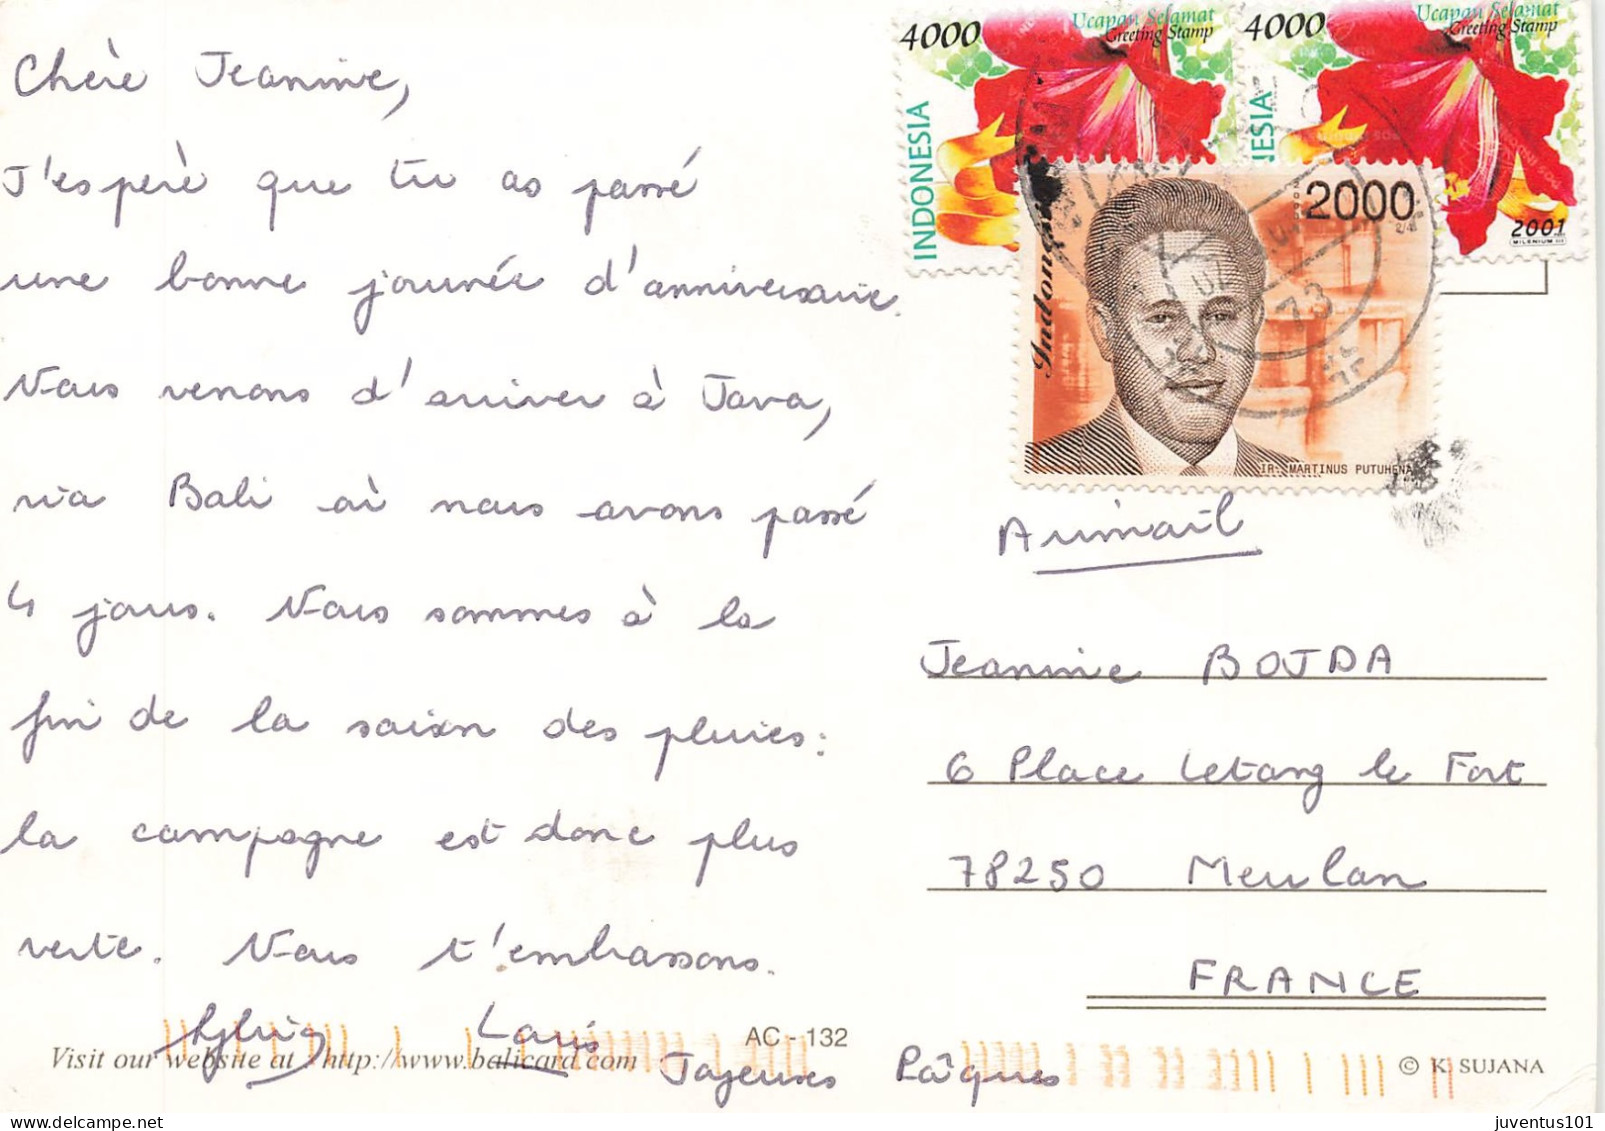 Chère Jeannine,
J'espère que tu as passé
une bonne journée d'anniversaire.
Nous venons d'arriver à Java,
via Bali où nous avons passé
4 jours. Nous sommes à la
fin de la saison des pluies :
la campagne est donc plus
verte. Nous t'embrassons.
Louis
Joyeuses Pâques
AC - 132
Visit our website at : http://www.balicard.com
© K. SUJANA
4000 Ucapan Selamat
Greeting Stamp
INDONESIA
4000 Ucapan Selamat
Greeting Stamp
NESIA
2001
MILENIUM III
2000
Indonesia
IR. MARTINUS PUTUHENA
73
Airmail
Jeannine BOJDA
6 Place Letang le Fort
78250 Meulan
FRANCE
juventus101